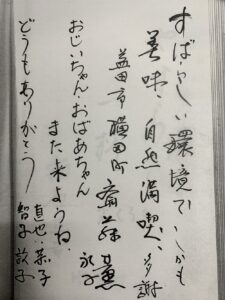 すばらしい環境でしかも
美味、自然満喫、多謝
益田市横田町 斎藤 薫
おじいちゃん・おばあちゃん
また来ようね。
どうもありがとう
直也・恭子
智子 敦子